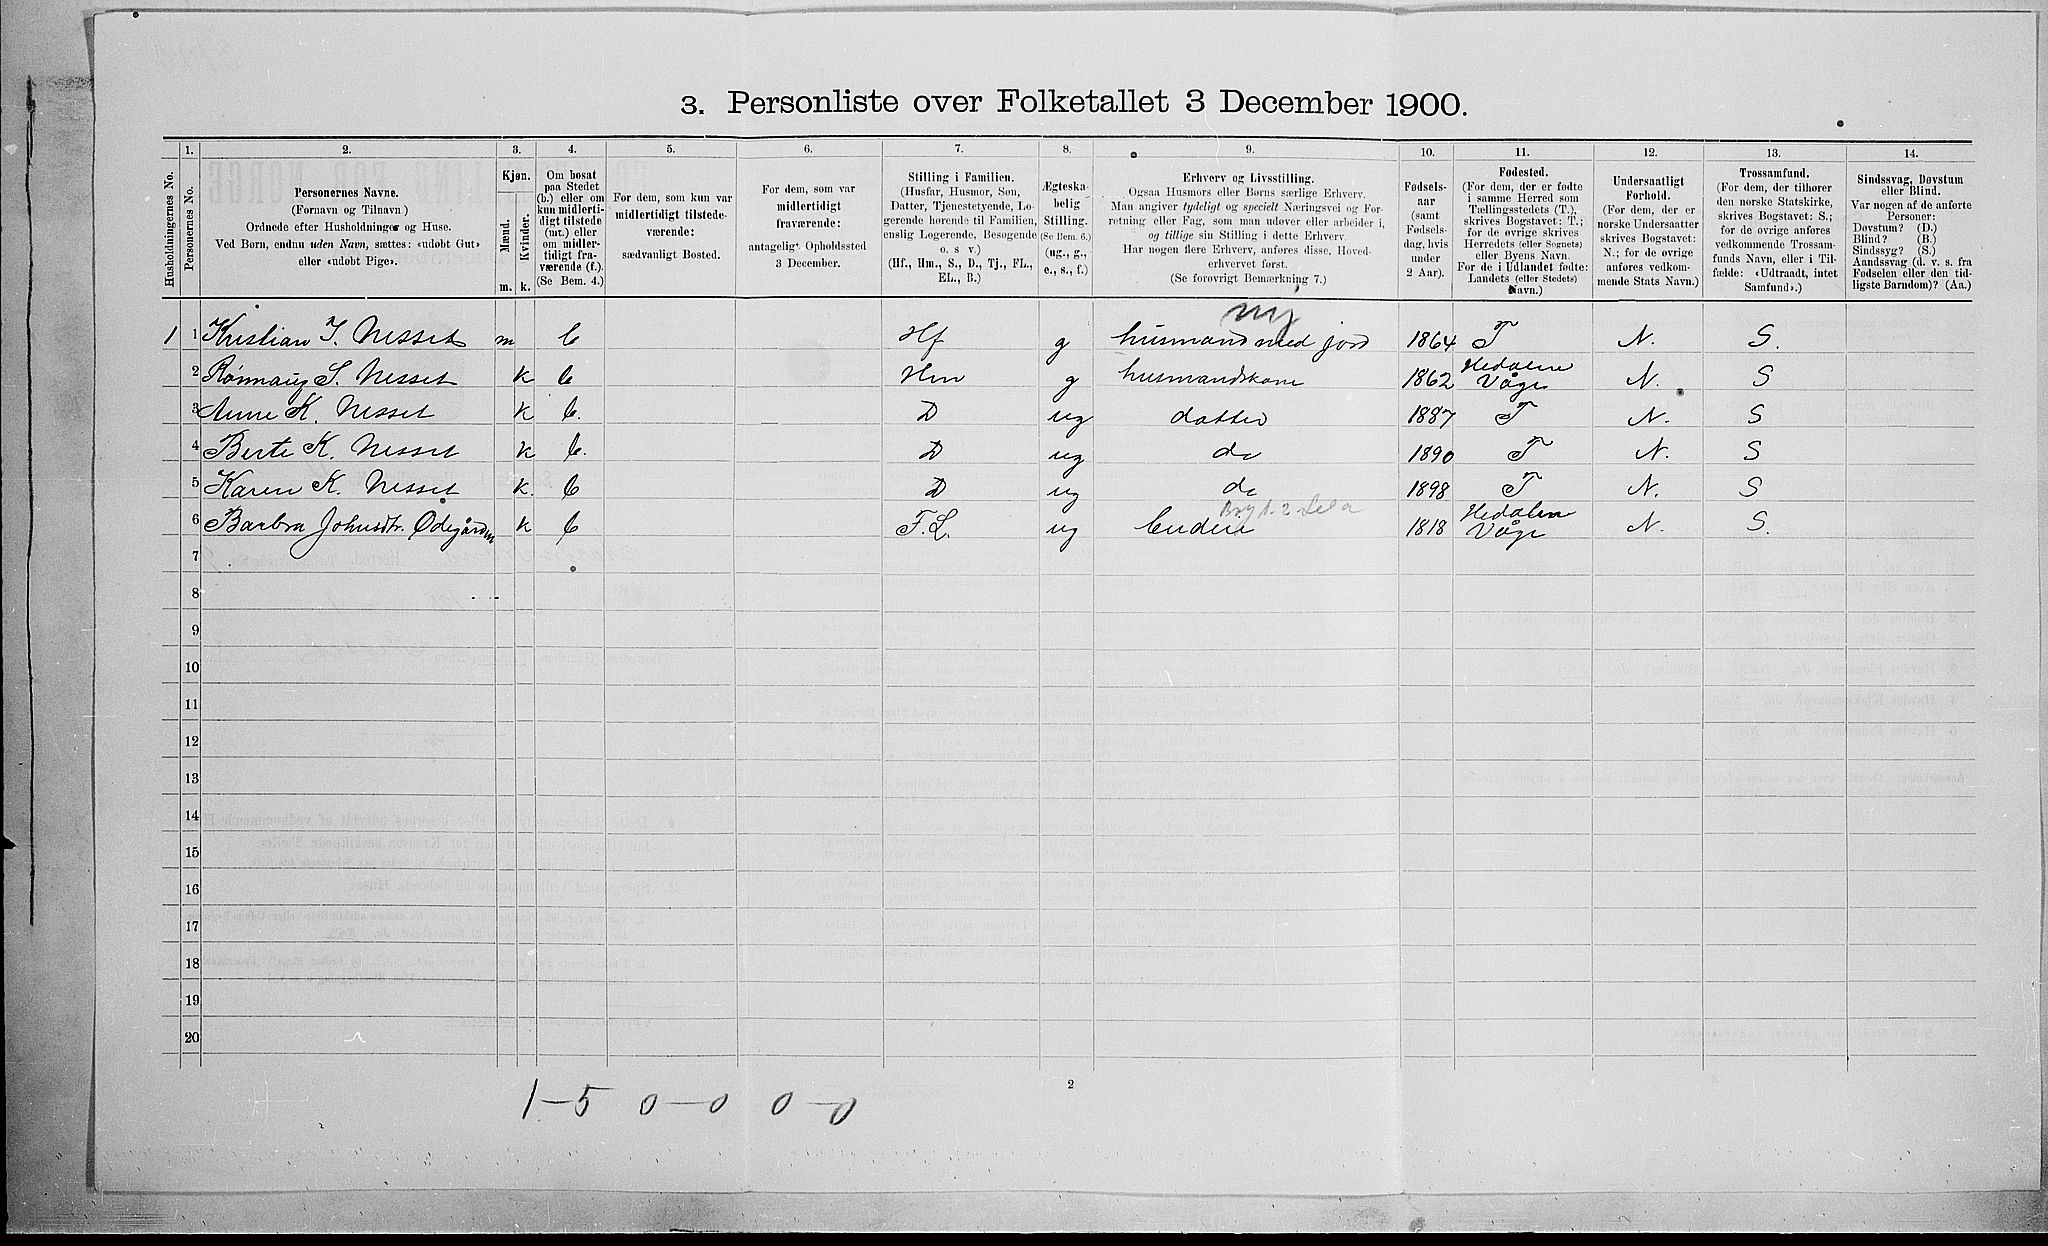 3. Personliste over Folketallet 3 December 1900.
Husholdningernes No.
1.
Personernes No.
2.
Personernes Navne.
(Fornavn og Tilnavn.)
Ordnede efter Husholdninger og Huse.
Ved Børn, endnu uden Navn, sættes: «udøbt Gut»
eller «udøbt Pige».
3.
Kjøn.
Mænd.
Kvinder.
m. k.
4.
Om bosat
paa Stedet
(b.) eller om
kun midlerti-
digt tilstede
(mt.) eller
om midler-
tidigt fra-
værende (f.).
(Se Bem. 4.)
5.
For dem, som kun var
midlertidigt tilstede-
værende:
sædvanligt Bosted.
6.
For dem, som var
midlertidigt
fraværende:
antageligt Opholdssted
3 December.
7.
Stilling i Familien.
(Husfar, Husmor, Søn,
Datter, Tjenestetyende, Lo-
gerende hørende til Familien,
enslig Logerende, Besøgende
o. s v.)
(Hf., Hm., S., D., Tj., FL.,
EL., B.)
8.
Ægteska-
belig
Stilling.
(Se Bem. 6.)
(ug., g.,
e., s., f.)
9.
Erhverv og Livsstilling.
Ogsaa Husmors eller Børns særlige Erhverv.
Man angiver tydeligt og specielt Næringsvei og For-
retning eller Fag, som man udøver eller arbeider i,
og tillige sin Stilling i dette Erhverv.
Har nogen flere Erhverv, anføres disse, Hoved-
erhvervet først.
(Se forøvrigt Bemærkning 7.)
10.
Fødsels-
aar
(samt
Fødsels-
dag, hvis
under
2 Aar).
11.
Fødested.
(For dem, der er fødte
i samme Herred som
Tællingsstedets (T.),
skrives Bogstavet: T.;
for de øvrige skrives
Herredets (eller Sognets)
eller Byens Navn.
For de i Udlandet fødte:
Landets (eller Stedets)
Navn.)
12.
Undersaatligt
Forhold.
(For dem, der er
norske Undersaatter
skrives Bogstavet:
N.; for de øvrige
anføres vedkom-
mende Stats Navn.)
13.
Trossamfund.
(For dem, der tilhører
den norske Statskirke,
skrives Bogstavet: S.;
for de øvrige anføres
vedkommende Trossam-
funds Navn, eller i Til-
fælde: «Udtraadt, intet
Samfund».)
14.
Sindssvag, Døvstum
eller Blind.
Var nogen af de anførte
Personer:
Døvstum? (D.)
Blind? (B.)
Sindssyg? (S.)
Aandssvag (d. v. s. fra
Fødselen eller den tid-
ligste Barndom)? (Aa.)
1 1 Kristian I. Nesset m b Hf g husmand med jord 1864 T N. S.
2 Rønnaug S. Nesset k b Hm g husmandskone 1862 Hedalene Våge N. S
3 Anne K. Nesset k b. D ug datter 1887 T N. S
4 Berte K. Nesset k b. D ug do 1890 T N. S
5 Karen K. Nesset k. b D ug do 1898 T N. S
6 Barbra Johnsdtr. Ødegården k b F.L. ug 1818 Hedalen Våge N. S.
7
8
9
10
11
12
13
14
15
16
17
18
19
20
2
1-5 0-0 0-0